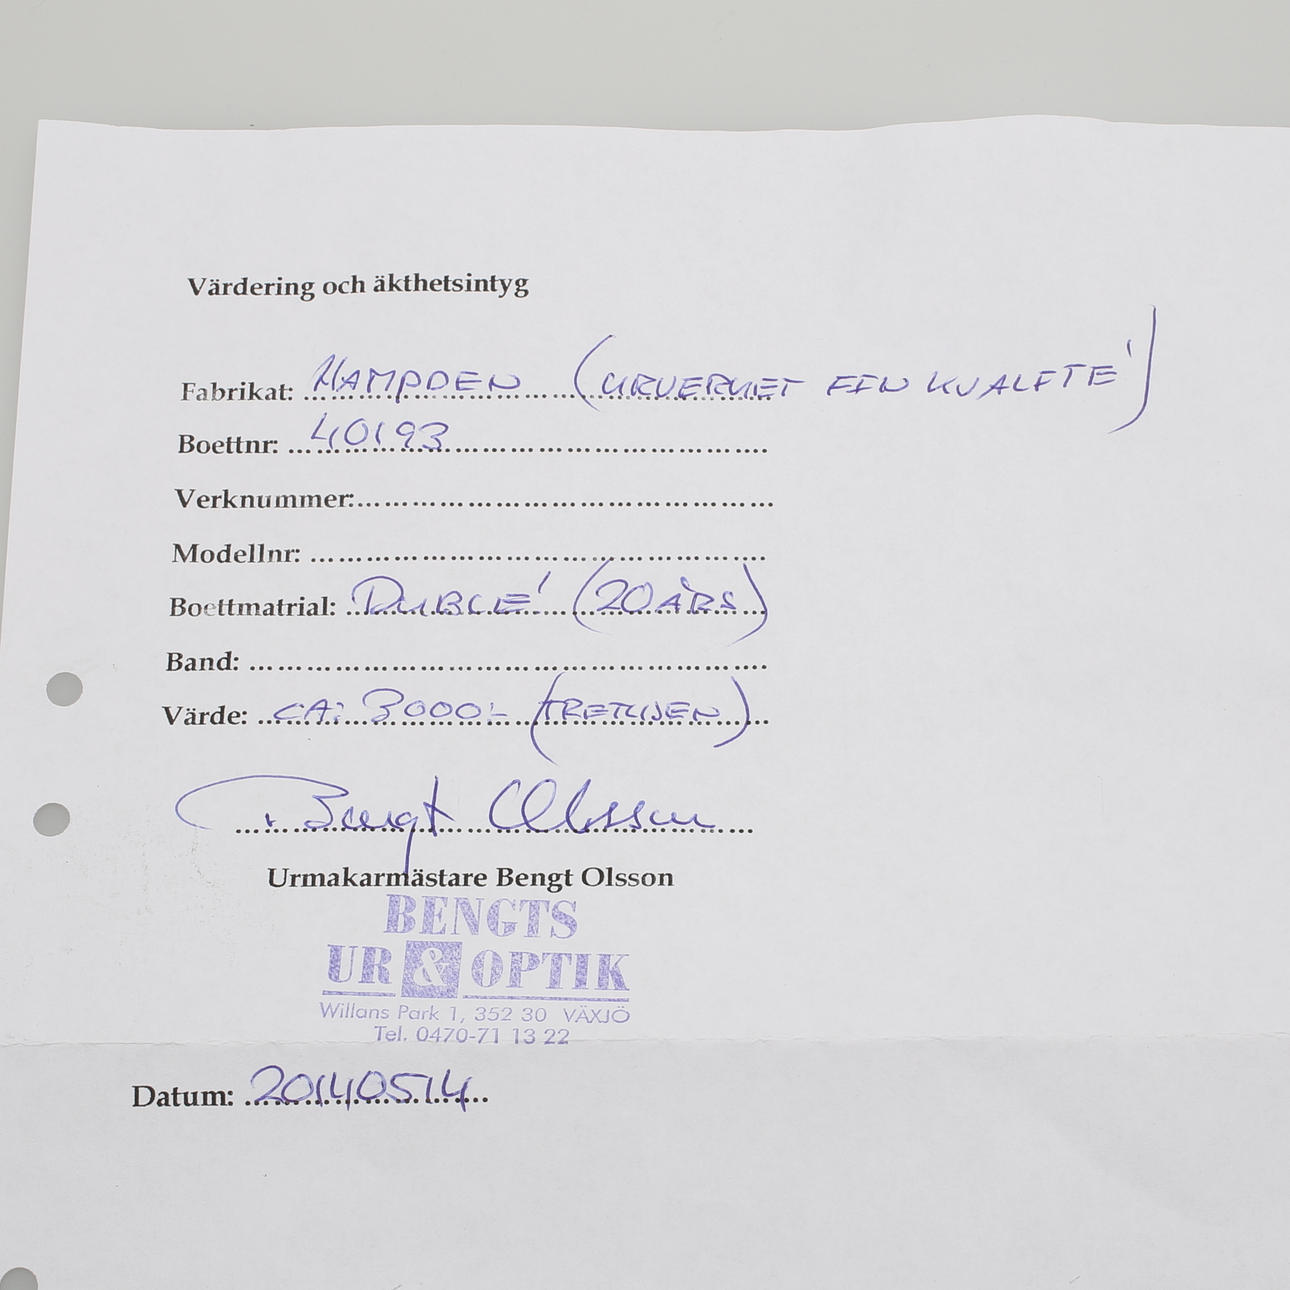 Värdering och äkthetsintyg
Fabrikat: HAMPDEN (URVERKET FIN KVALITÉ)
Boettnr: 40193
Verknummer:
Modellnr:
Boettmatrial: DUBLÉ (20 ÅRS)
Band:
Värde: CA: 3000:- (TRETUSEN)
Bengt Olsson
Urmakarmästare Bengt Olsson
BENGTS
UR & OPTIK
Willans Park 1, 352 30 VÄXJÖ
Tel. 0470-71 13 22
Datum: 20140514